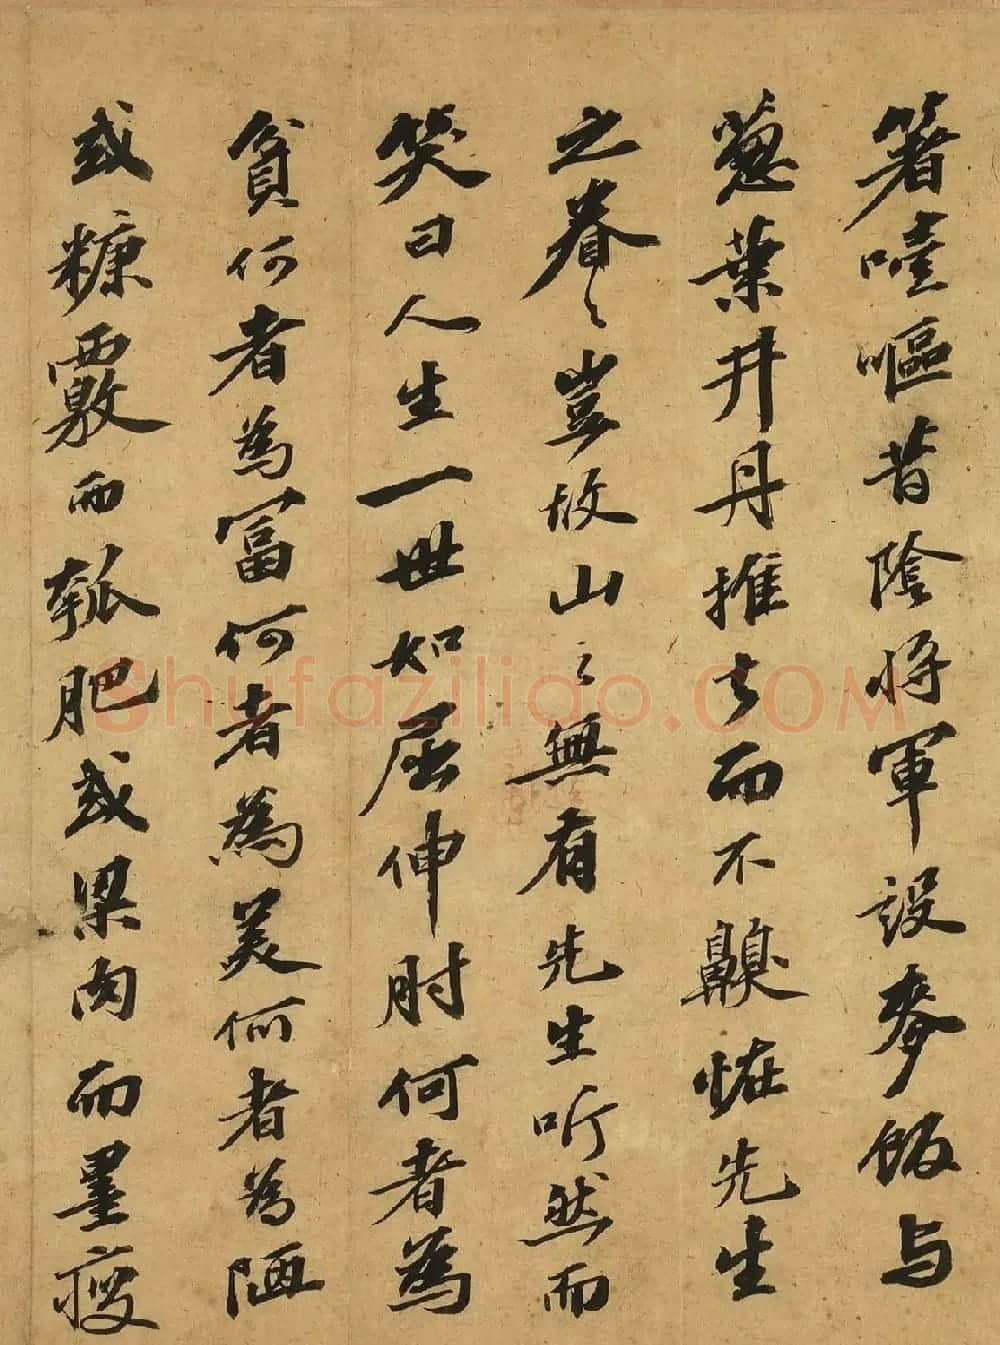 箸噎嘔昔陰将軍設麥飯与
葱葉井丹推去而不齅恠先生
之眷〻豈故山之無有先生听然而
笑曰人生一世如屈伸肘何者為
貧何者為富何者為美何者為陋
或糠覈而瓠肥或梁肉而墨瘦
Shufaziliao.COM